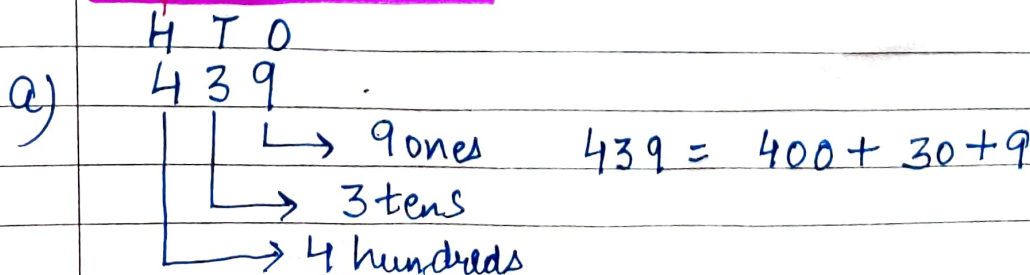 H T O
a) 4 3 9
9 ones 439 = 400 + 30 + 9
3 tens
4 hundreds